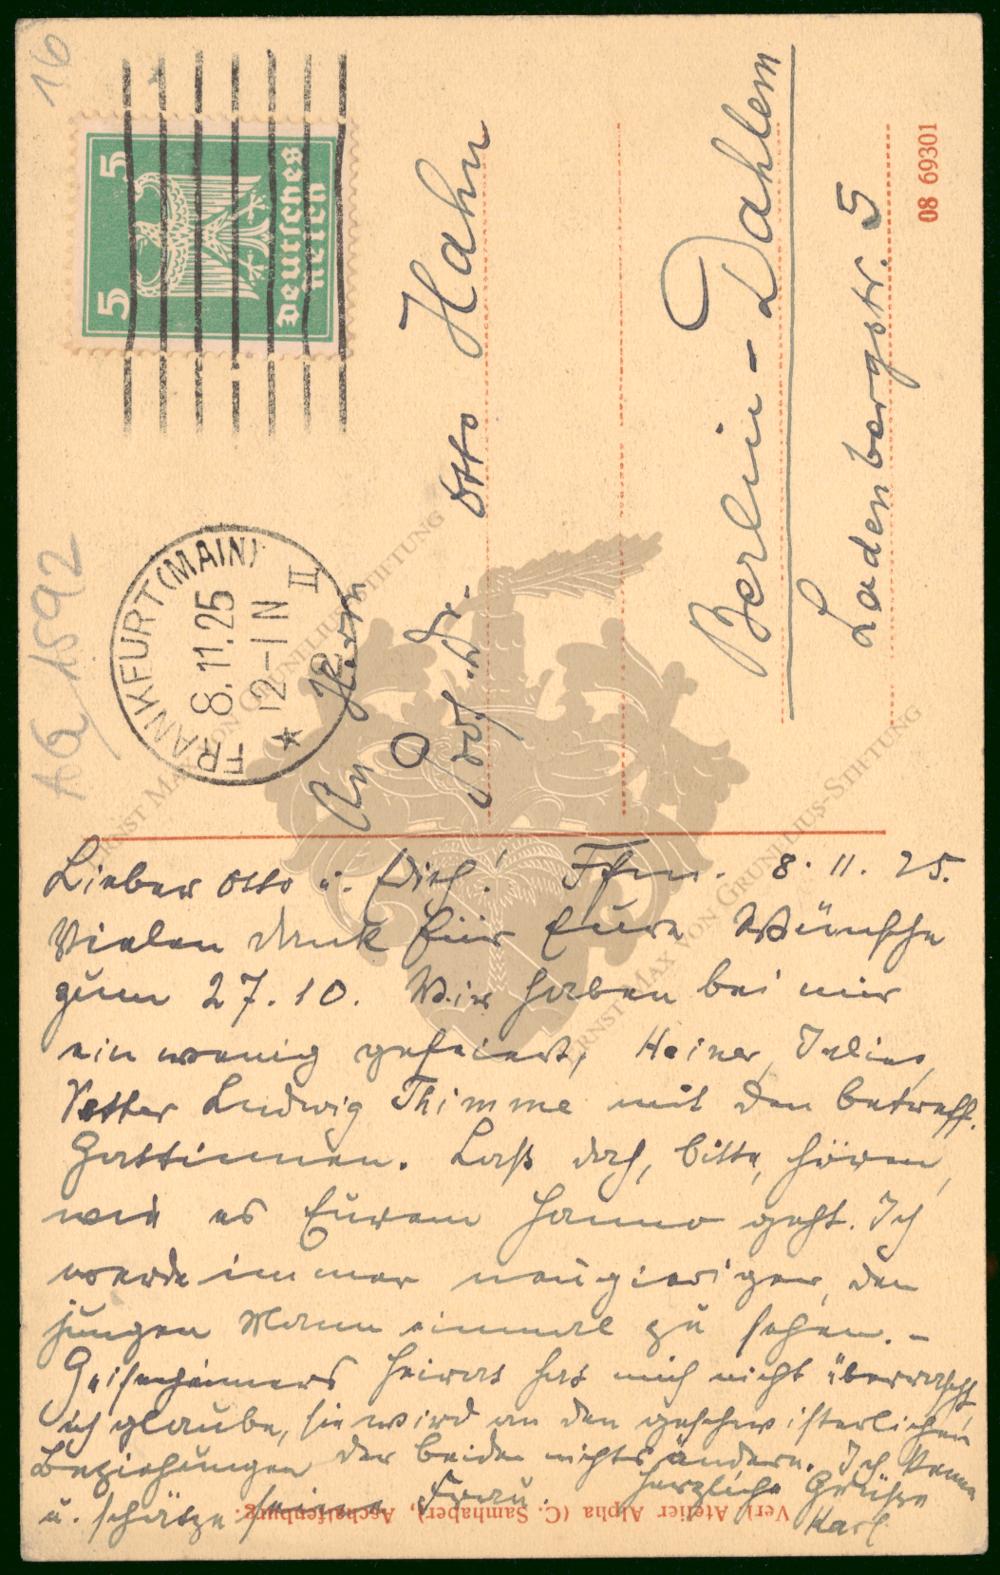 16
AG 1592
5 5
Deutsches
Reich
FRANKFURT (MAIN)
8.11.25
12-1 N
* 2 II
An Herrn
Prof. Dr. Otto Hahn
Berlin-Dahlem
Ladenbergstr. 5
08 69301
Lieber Otto u. Edith! Ffm. 8.11.25.
Vielen Dank für Eure Wünsche
zum 27.10. Wir haben bei mir
ein wenig gefeiert, Heiner, Julius,
Vetter Ludwig Thimme mit den betreff.
Gattinnen. Laß doch, bitte, hören,
wie es Eurem Hanno geht. Ich
werde immer neugieriger, den
jungen Mann einmal zu sehen. –
Geisenheimers Heirat hat mich nicht überrascht,
ich glaube, sie wird an den geschwisterlichen
Beziehungen der beiden nichts ändern. Ich kenne
u. schätze seine Frau. Herzliche Grüße
Karl
Verl. Atelier Alpha (C. Samhaber), Aschaffenburg.
ERNST MAX VON GRUNELIUS-STIFTUNG
ERNST MAX VON GRUNELIUS-STIFTUNG